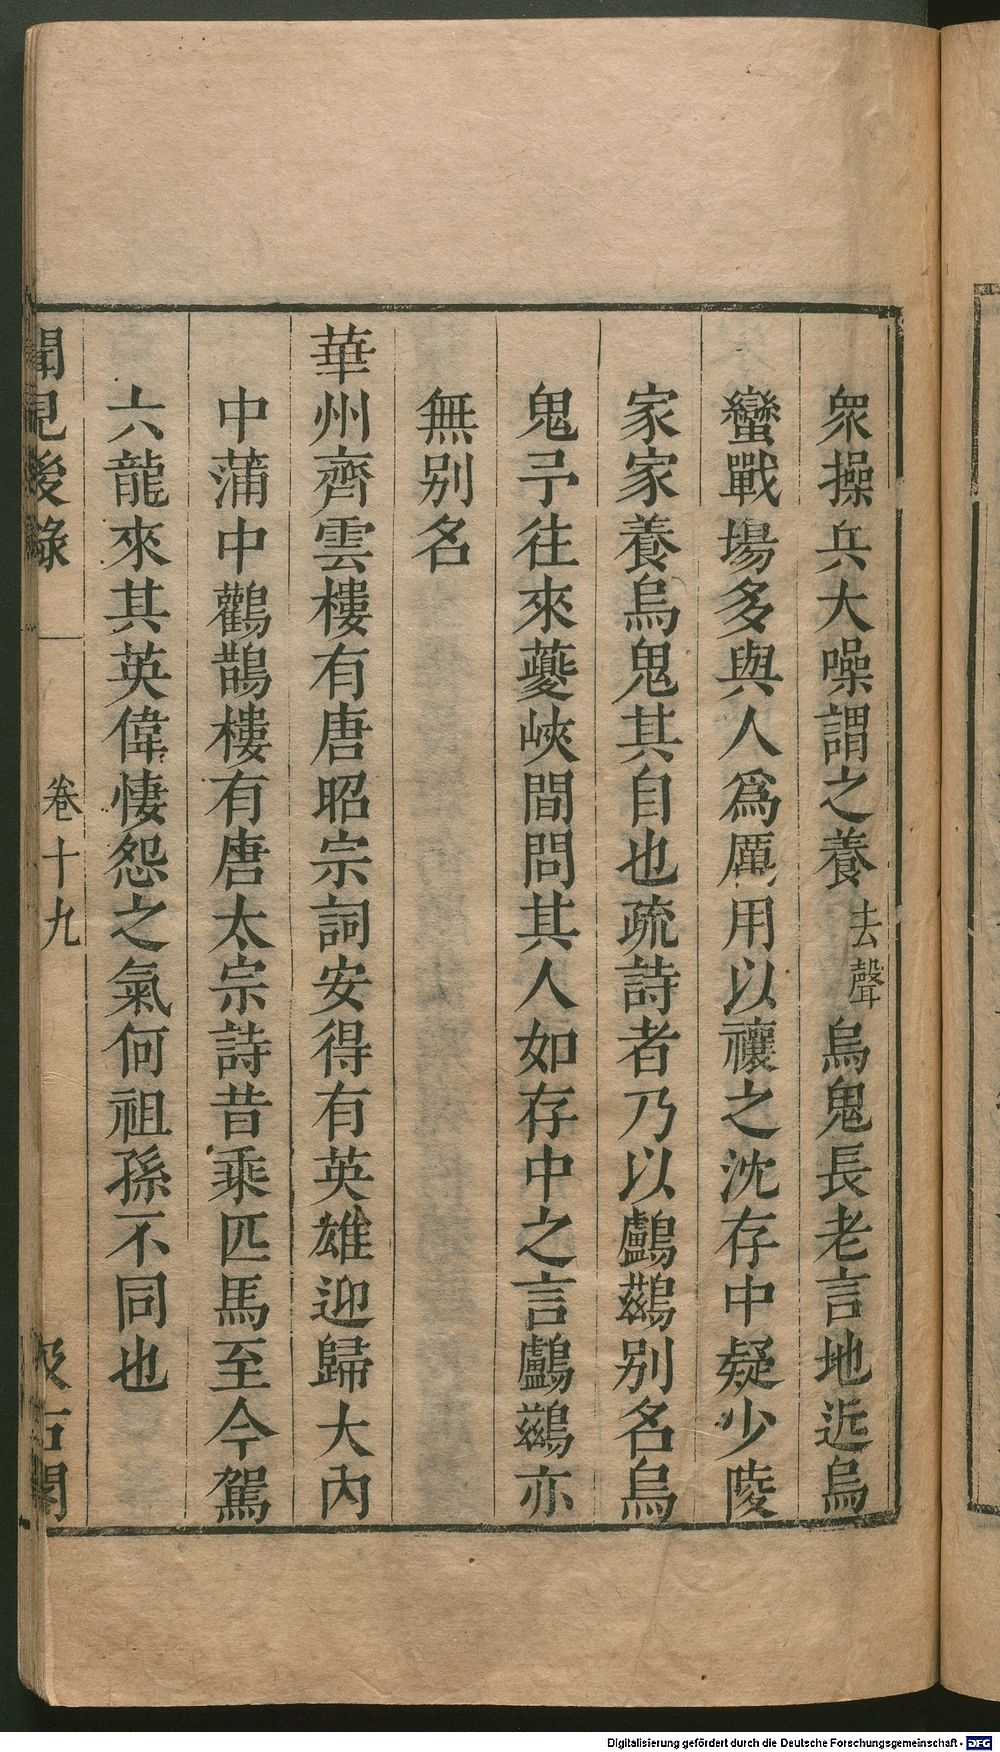 衆操兵大噪謂之養去聲烏鬼長老言地近烏
蠻戰場多與人爲厲用以禳之沈存中疑少陵
家家養烏鬼其自也疏詩者乃以鸕鷀别名烏
鬼予往來夔峽間問其人如存中之言鸕鷀亦
無别名
華州齊雲樓有唐昭宗詞安得有英雄迎歸大內
中蒲中鸛鵲樓有唐太宗詩昔乘匹馬至今駕
六龍來其英偉悽怨之氣何祖孫不同也
聞見後錄
卷十九
汲古閣
Digitalisierung gefördert durch die Deutsche Forschungsgemeinschaft - DFG